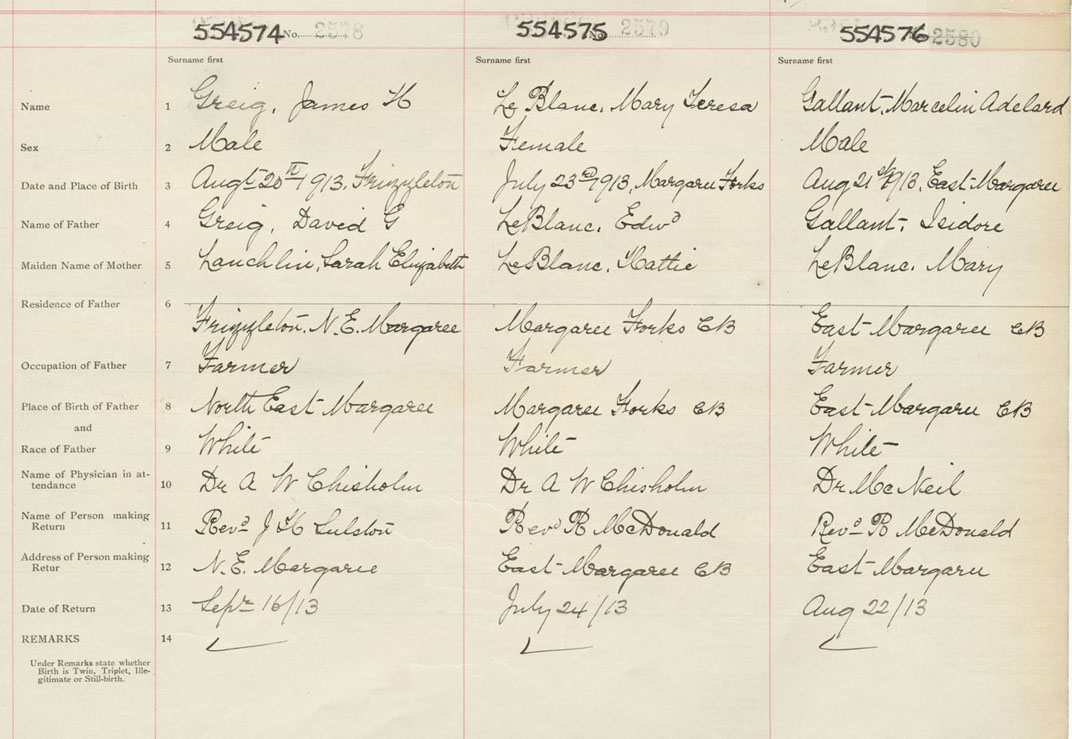 554574 No. 2578 554575 No. 2579 554576 2580
Surname first Surname first Surname first
Name 1 Greig, James H Le Blanc, Mary Teresa Gallant, Marcelin Adelard
Sex 2 Male Female Male
Date and Place of Birth 3 Augt 20th 1913, Frizzleton July 23rd 1913, Margaree Forks Aug 21st 1913, East Margaree
Name of Father 4 Greig, David G LeBlanc, Edwd Gallant, Isidore
Maiden Name of Mother 5 Lauchlin, Sarah Elizabeth LeBlanc, Hattie LeBlanc, Mary
Residence of Father 6
Frizzleton, N.E. Margaree Margaree Forks CB East Margaree CB
Occupation of Father 7 Farmer Farmer Farmer
Place of Birth of Father 8 North East Margaree Margaree Forks CB East Margaree CB
and
Race of Father 9 White White White
Name of Physician in at-
tendance 10 Dr A W Chisholm Dr A W Chisholm Dr McNeil
Name of Person making
Return 11 Revd J H Revd R McDonald Revd R McDonald
Address of Person making
Retur 12 N.E. Margaree East Margaree CB East Margaree
Date of Return 13 Sepr 16/13 July 24/13 Aug 22/13
REMARKS 14
Under Remarks state whether
Birth is Twin, Triplet, Ille-
gitimate or Still-birth.